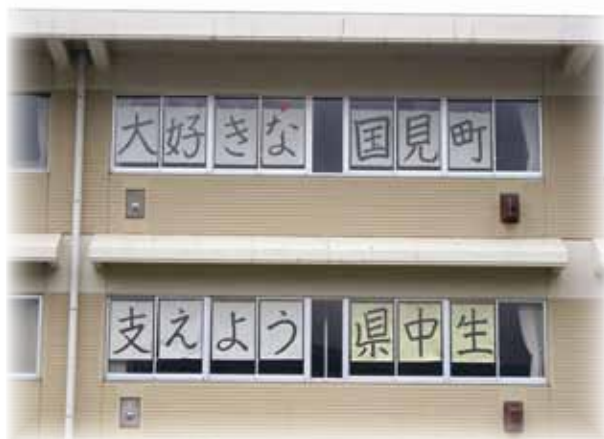 大好きな 国見町
支えよう 県中生